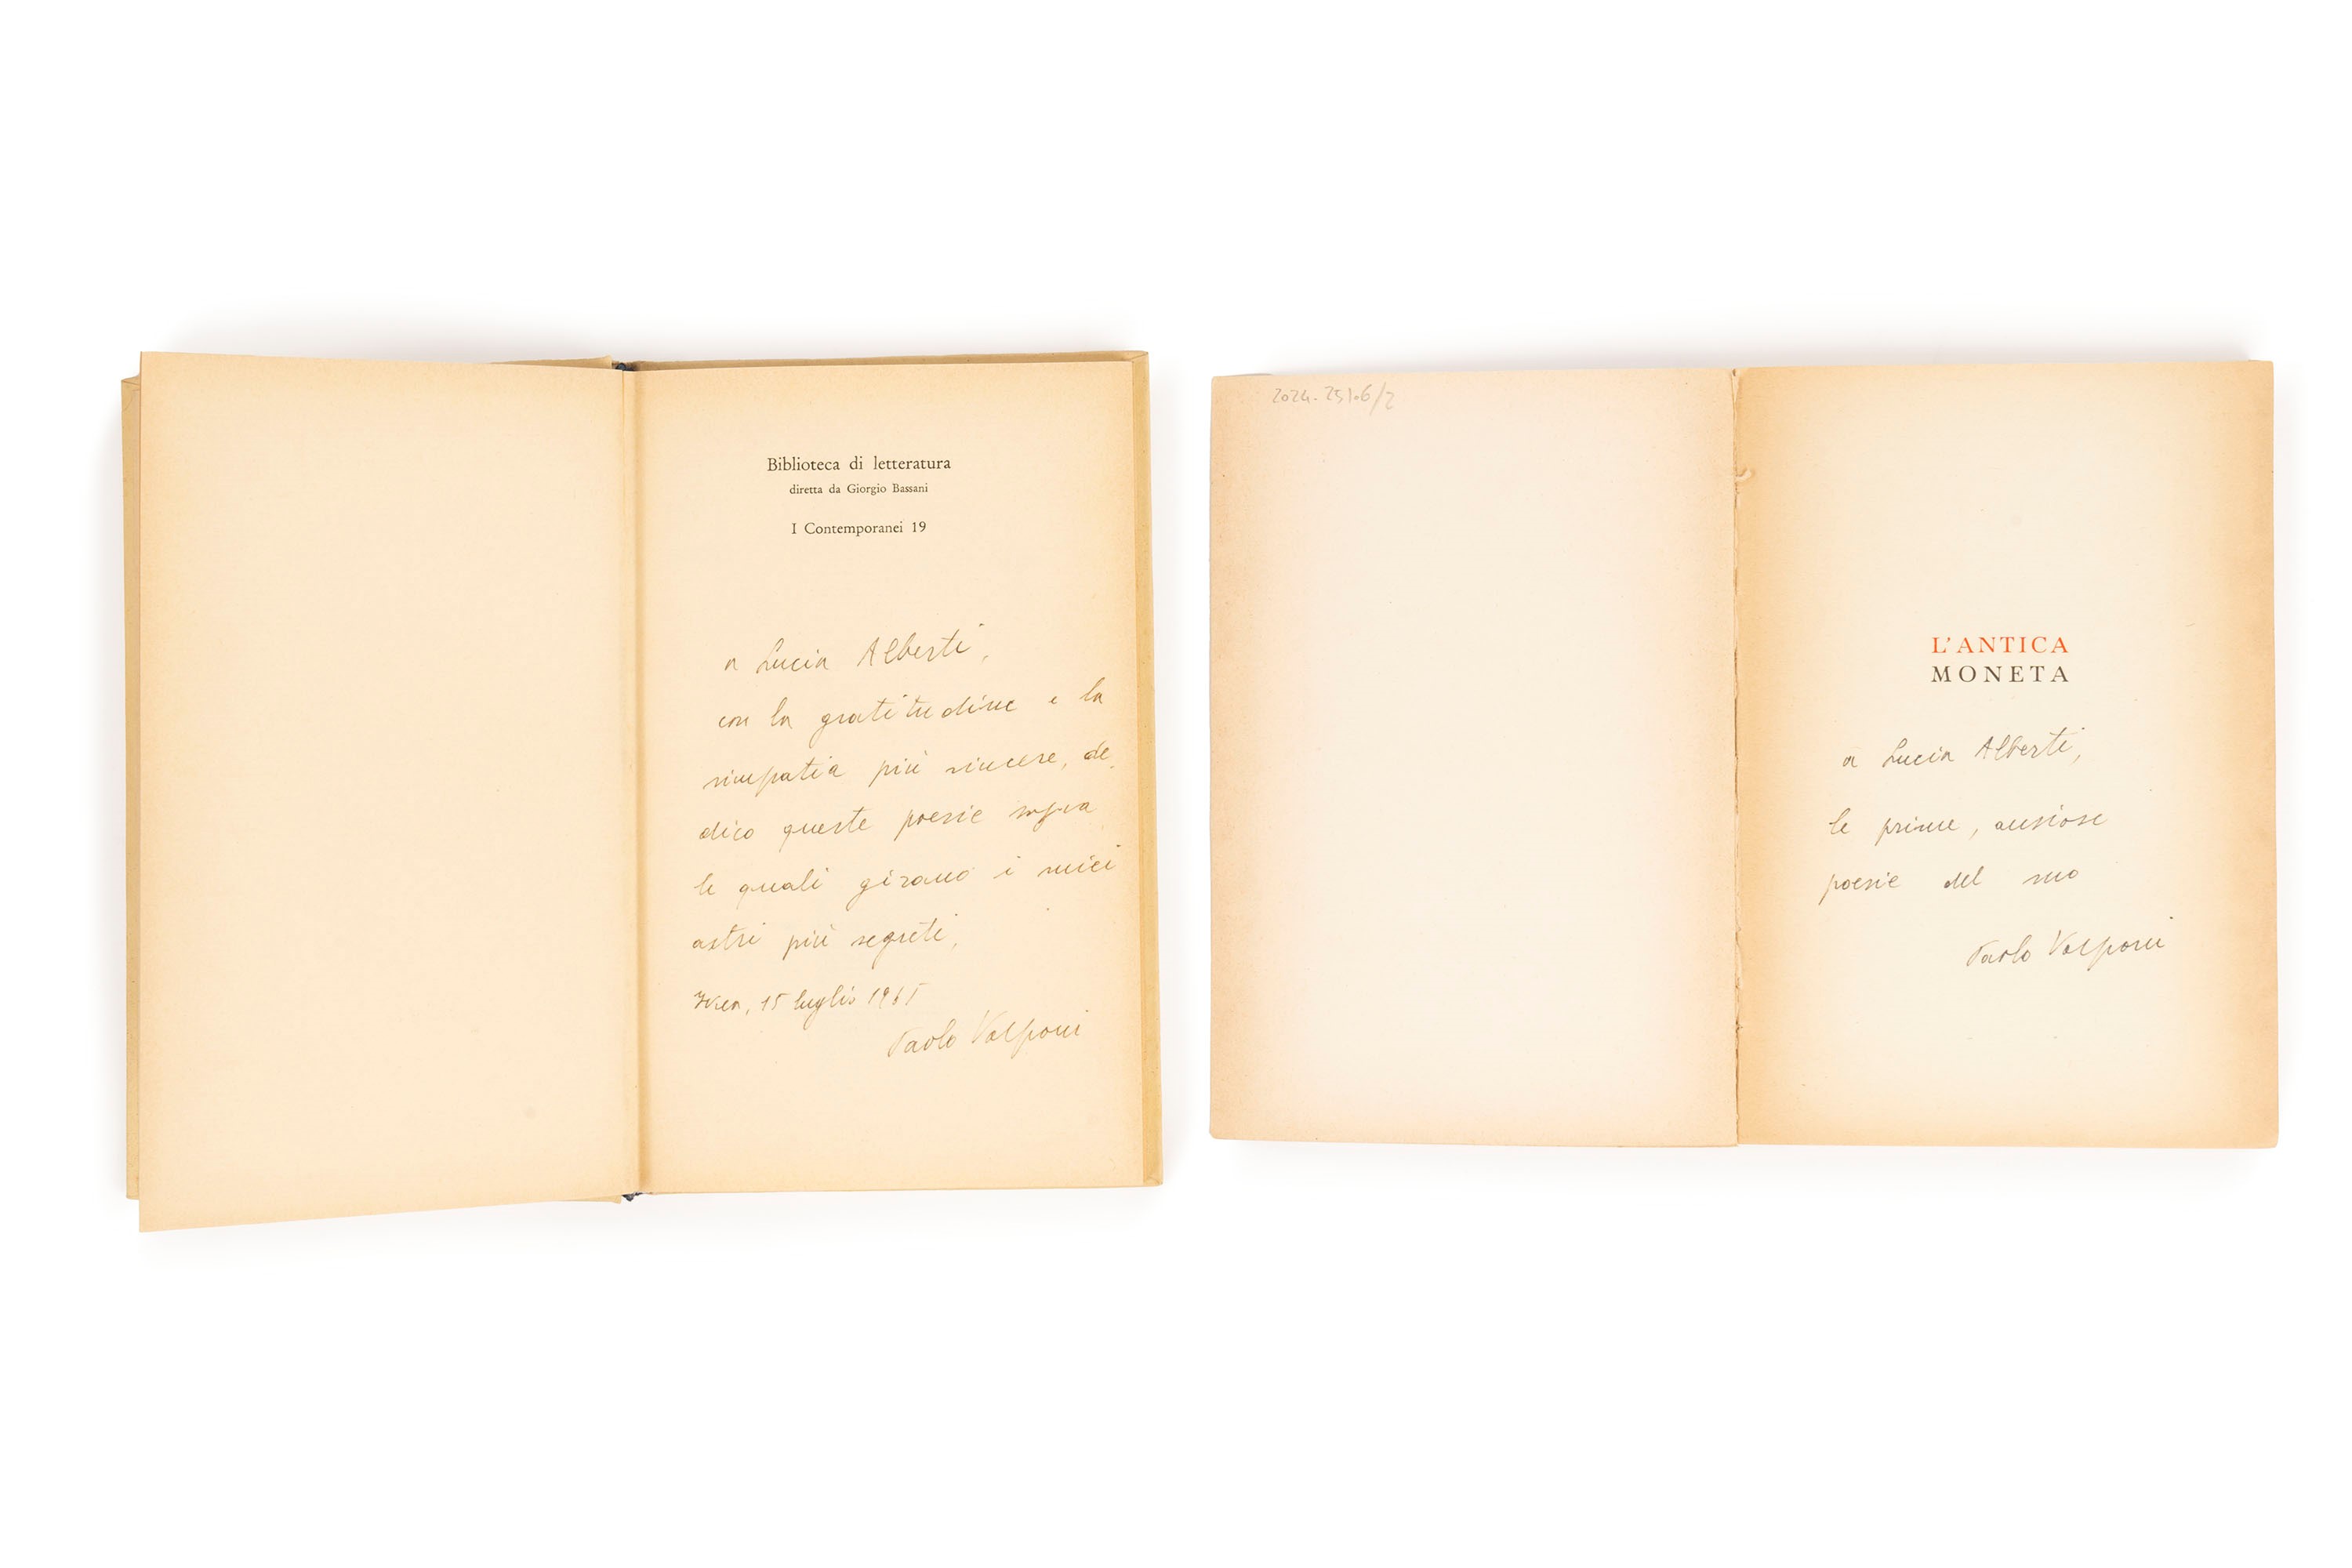 Biblioteca di letteratura
diretta da Giorgio Bassani
I Contemporanei 19
a Lucia Alberti,
con la gratitudine e la
simpatia più sincere, de,
dico queste poesie sopra
le quali girano i miei
astri più segreti,
Ivrea, 15 luglio 1965
Paolo Volponi
2024. 2510.6/2
L'ANTICA
MONETA
a Lucia Alberti,
le prime, ansiose
poesie del suo
Paolo Volponi